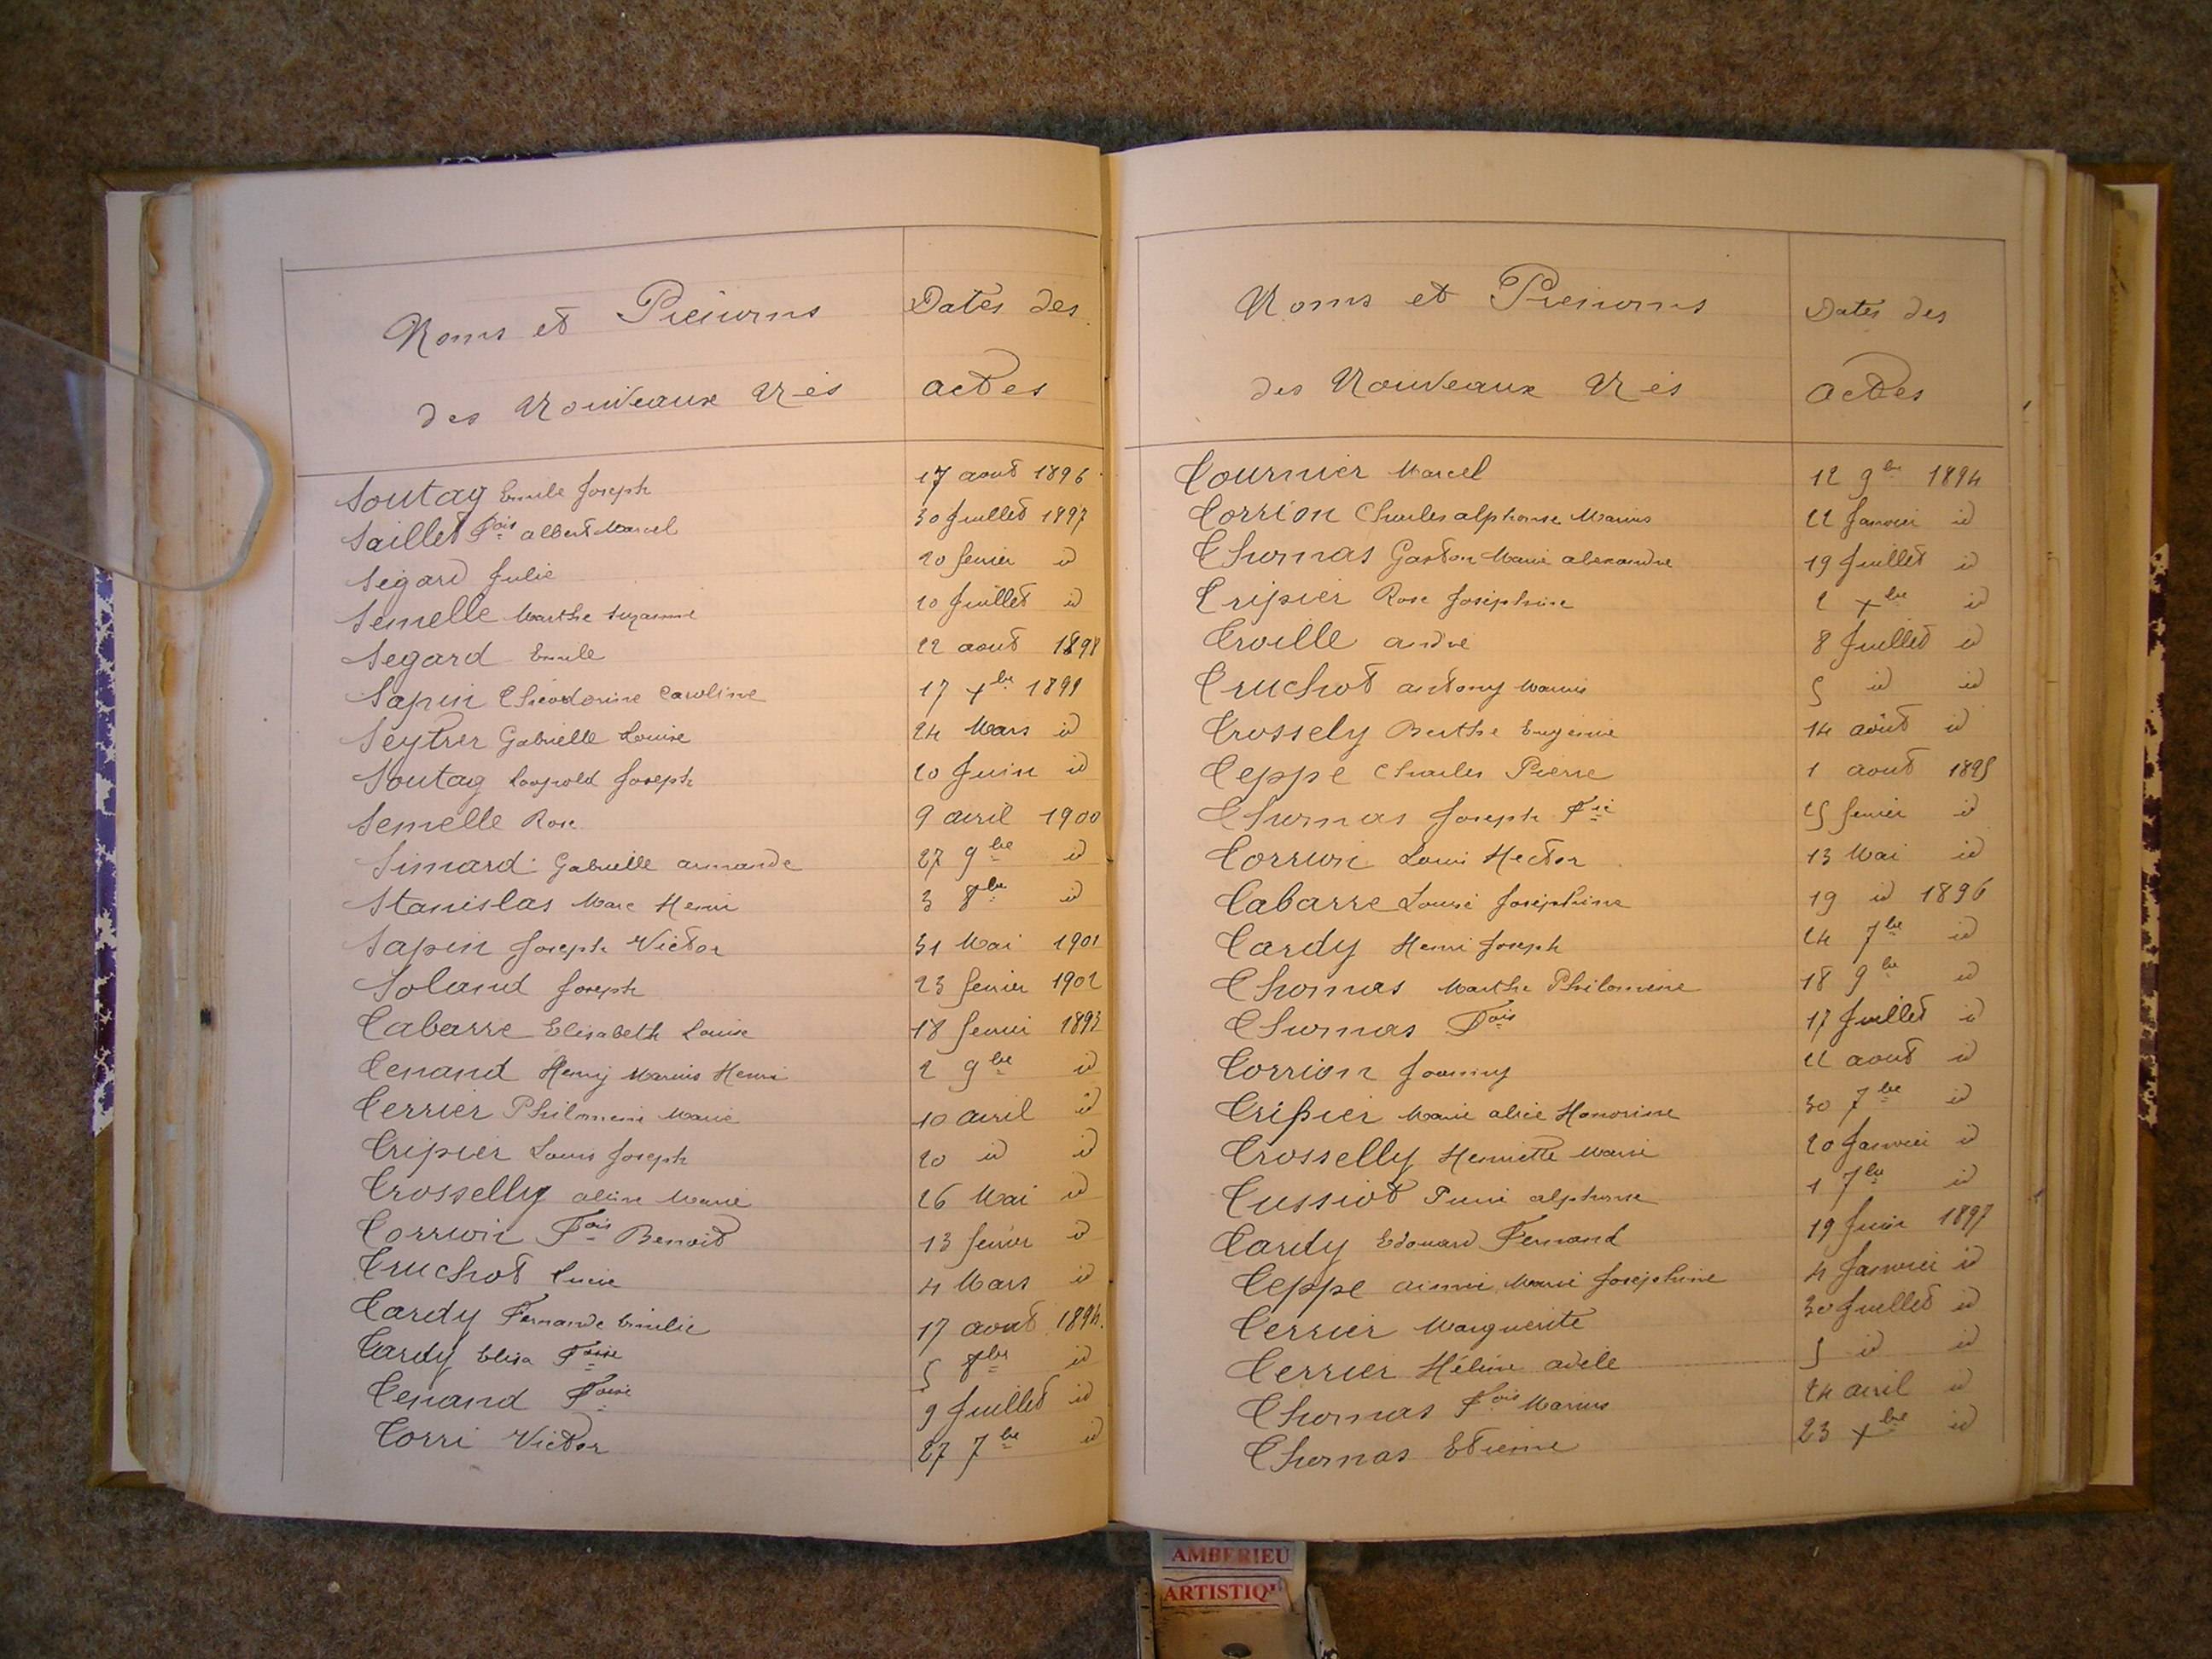 Noms et Prénoms
des Nouveaux Nés
Dates des
actes
Soutag Emile Joseph 17 aout 1896
Saillet Fois albert Marcel 30 Juillet 1897
Segard Julie 20 fevrier id
Semelle Marthe Suzanne 10 Juillet id
Segard Emile 22 aout 1898
Sapin Théodorine Caroline 17 xbre 1899
Seytrer Gabrielle Louise 24 Mars id
Soutag Léopold Joseph 10 Juin id
Semelle Rose 9 avril 1900
Simard Gabrielle armande 27 9bre id
Stanislas Marc Henri 3 8bre id
Sapin Joseph Victor 31 Mai 1901
Soland Joseph 23 fevrier 1902
Tabarre Elisabeth Louise 18 fevrier 1893
Tenand Henry Marius Henri 2 9bre id
Terrier Philomène Marie 10 avril id
Tripier Louis Joseph 20 id id
Trosselly aline Marie 26 Mai id
Torrion Fois Benoit 13 fevrier id
Truchot Lucie 4 Mars id
Tardy Fernande Emilie 17 aout 1894
Tardy Elisa Foise 5 8bre id
Tenand Foise 9 Juillet id
Torri Victor 27 7bre id
Noms et Prénoms
des Nouveaux Nés
Dates des
actes
Tournier Marcel 12 9bre 1894
Torrion Charles alphonse Marius 22 Janvier id
Thomas Gaston Marie alexandre 19 Juillet id
Tripier Rose Joséphine 2 xbre id
Troille andré 8 Juillet id
Truchot antony Marius 5 id id
Trossely Berthe Eugénie 14 août id
Teppe Charles Pierre 1 aout 1895
Thomas Joseph 25 fevrier id
Torrion Louis Hector 13 Mai id
Tabarre Louise Joséphine 19 id 1896
Tardy Henri Joseph 24 7bre id
Thomas Marthe Philomène 18 9bre id
Thomas Fois 17 Juillet id
Torrion Joanny 22 aout id
Tripier Marie alice Honorine 30 7bre id
Trosselly Henriette Marie 20 Janvier id
Tussiot Pierre alphonse 1 7bre id
Tardy Edouard Fernand 19 Juin 1897
Teppe aimée Marie Joséphine 4 Janvier id
Terrier Marguerite 30 Juillet id
Terrier Hélène adèle 5 id id
Thomas Fois Marius 24 avril id
Thomas Etienne 23 xbre id
AMBERIEU
ARTISTIQ